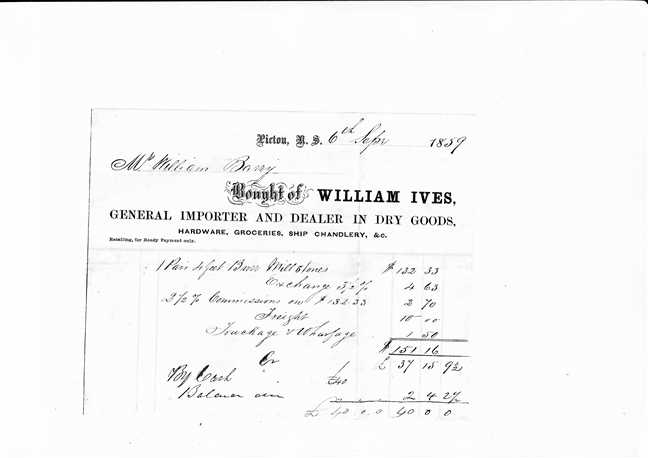 Pictou, N. S. 6th Sepr 1859
Mr William Barry
Bought of WILLIAM IVES,
GENERAL IMPORTER AND DEALER IN DRY GOODS,
HARDWARE, GROCERIES, SHIP CHANDLERY, &C.
Retailing, for Ready Payment only.
1 Pair 4 feet Burr Mill Stones $ 132 33
Exchange 3½ % 4 63
2½ % Commissions on $ 132 33 2 70
Freight 10 00
Truckage & Wharfage 1 50
$ 151 16
Cr £ 37 15 9½
By Cash £40
Balance 2 4 2½
£ 40 0 0 40 0 0